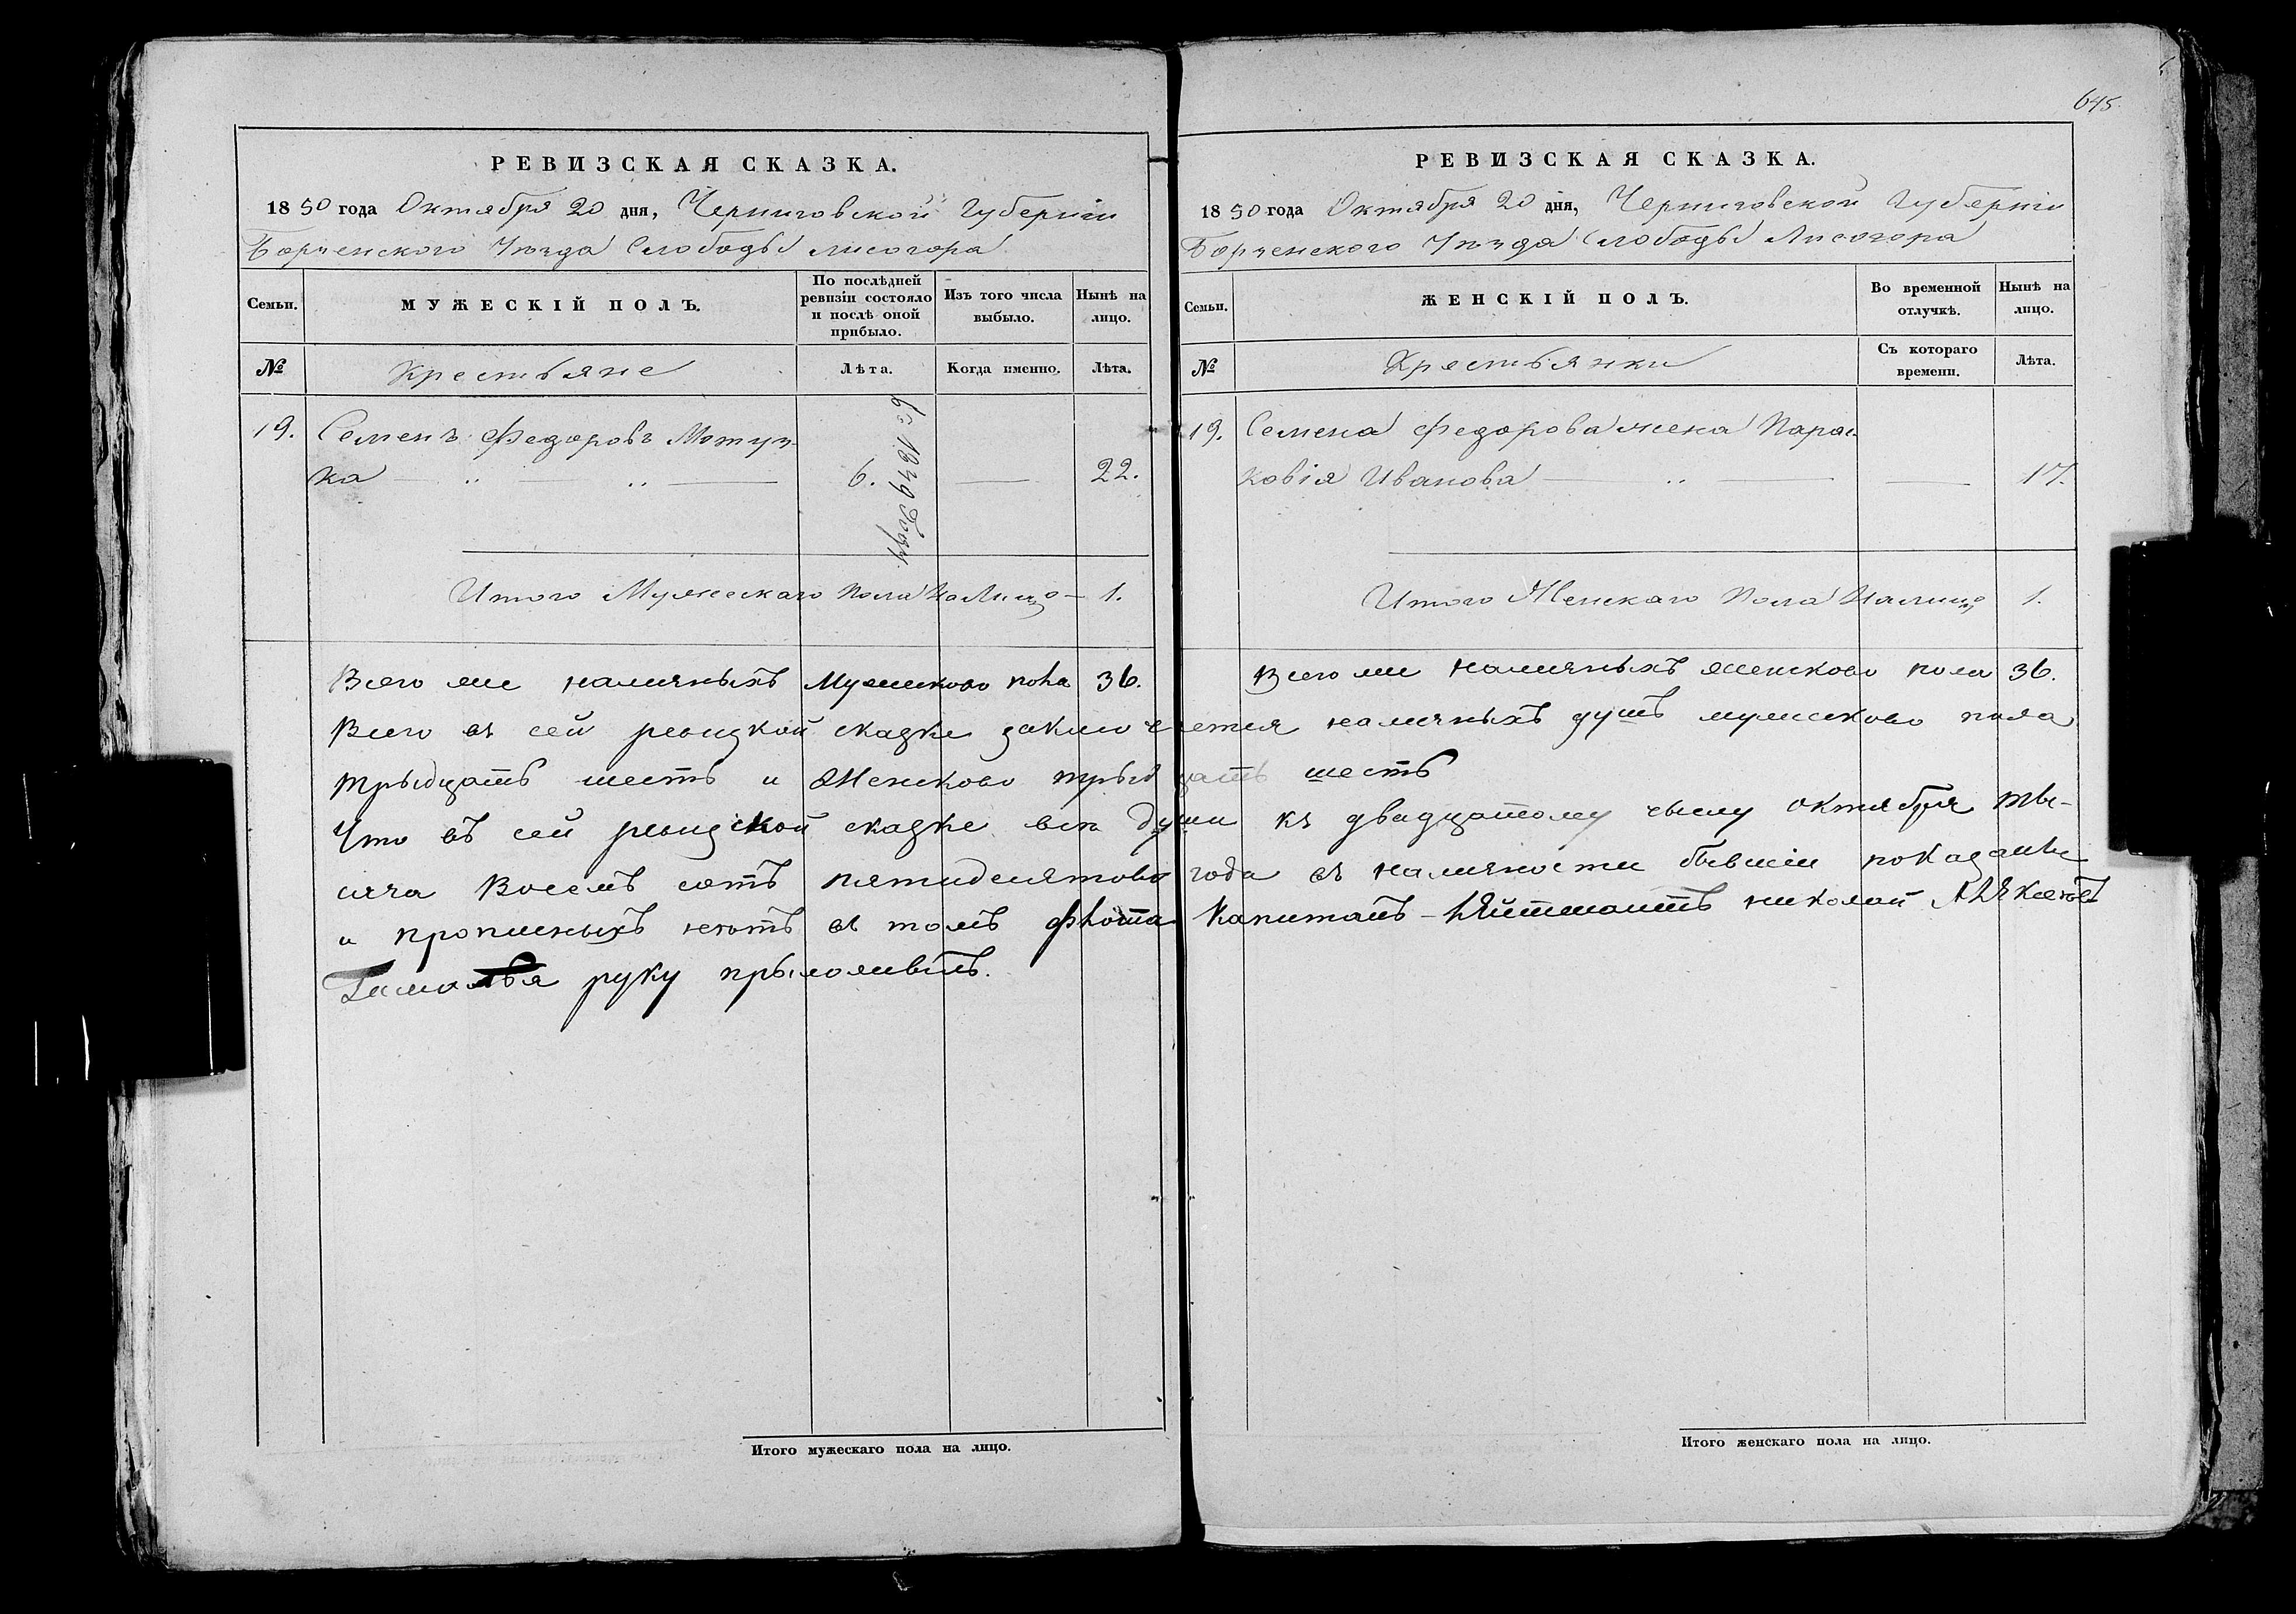 645
РЕВИЗСКАЯ СКАЗКА.
1850 года Октября 20 дня, Черниговской Губернiи
Борзенского Уѣзда Слободы Лисогора
Семьи.
МУЖЕСКIЙ ПОЛЪ.
По послѣдней ревизiи состояло и послѣ оной прибыло.
Изъ того числа выбыло.
Нынѣ на лицо.
№
Крестьяне
Лѣта.
Когда именно.
Лѣта.
19. Семенъ Федоровъ Мотуз-
ка 6. 22.
съ 1849 года
Итого Мужескаго Пола На Лицо 1.
Всего же наличныхъ Мужесково пола 36.
РЕВИЗСКАЯ СКАЗКА.
1850 года Октября 20 дня, Черниговской Губернiи
Борзенского Уѣзда Слободы Лисогора
Семьи.
ЖЕНСКIЙ ПОЛЪ.
Во временной отлучкѣ.
Нынѣ на лицо.
№
Крестьянки
Съ котораго времени.
Лѣта.
19. Семена Федорова жена Парас-
ковiя Иванова 17.
Итого Женскаго Пола Налицо 1.
Всего же наличныхъ женсково пола 36.
Всего въ сей ревизкой сказке заключается наличныхъ душъ мужесково пола
трыдцать шесть и Женсково трыдцать шесть
Что въ сей ревизской сказке всѣ души къ двадцатому чыслу октября ты-
сяча Восемъ сотъ пятидесятово года въ наличности бывшiи показаны
и прописныхъ нѣтъ въ томъ флота Капитанъ-Лѣйтенантъ николай
руку прыложивъ.
Итого мужескаго пола на лицо.
Итого женскаго пола на лицо.